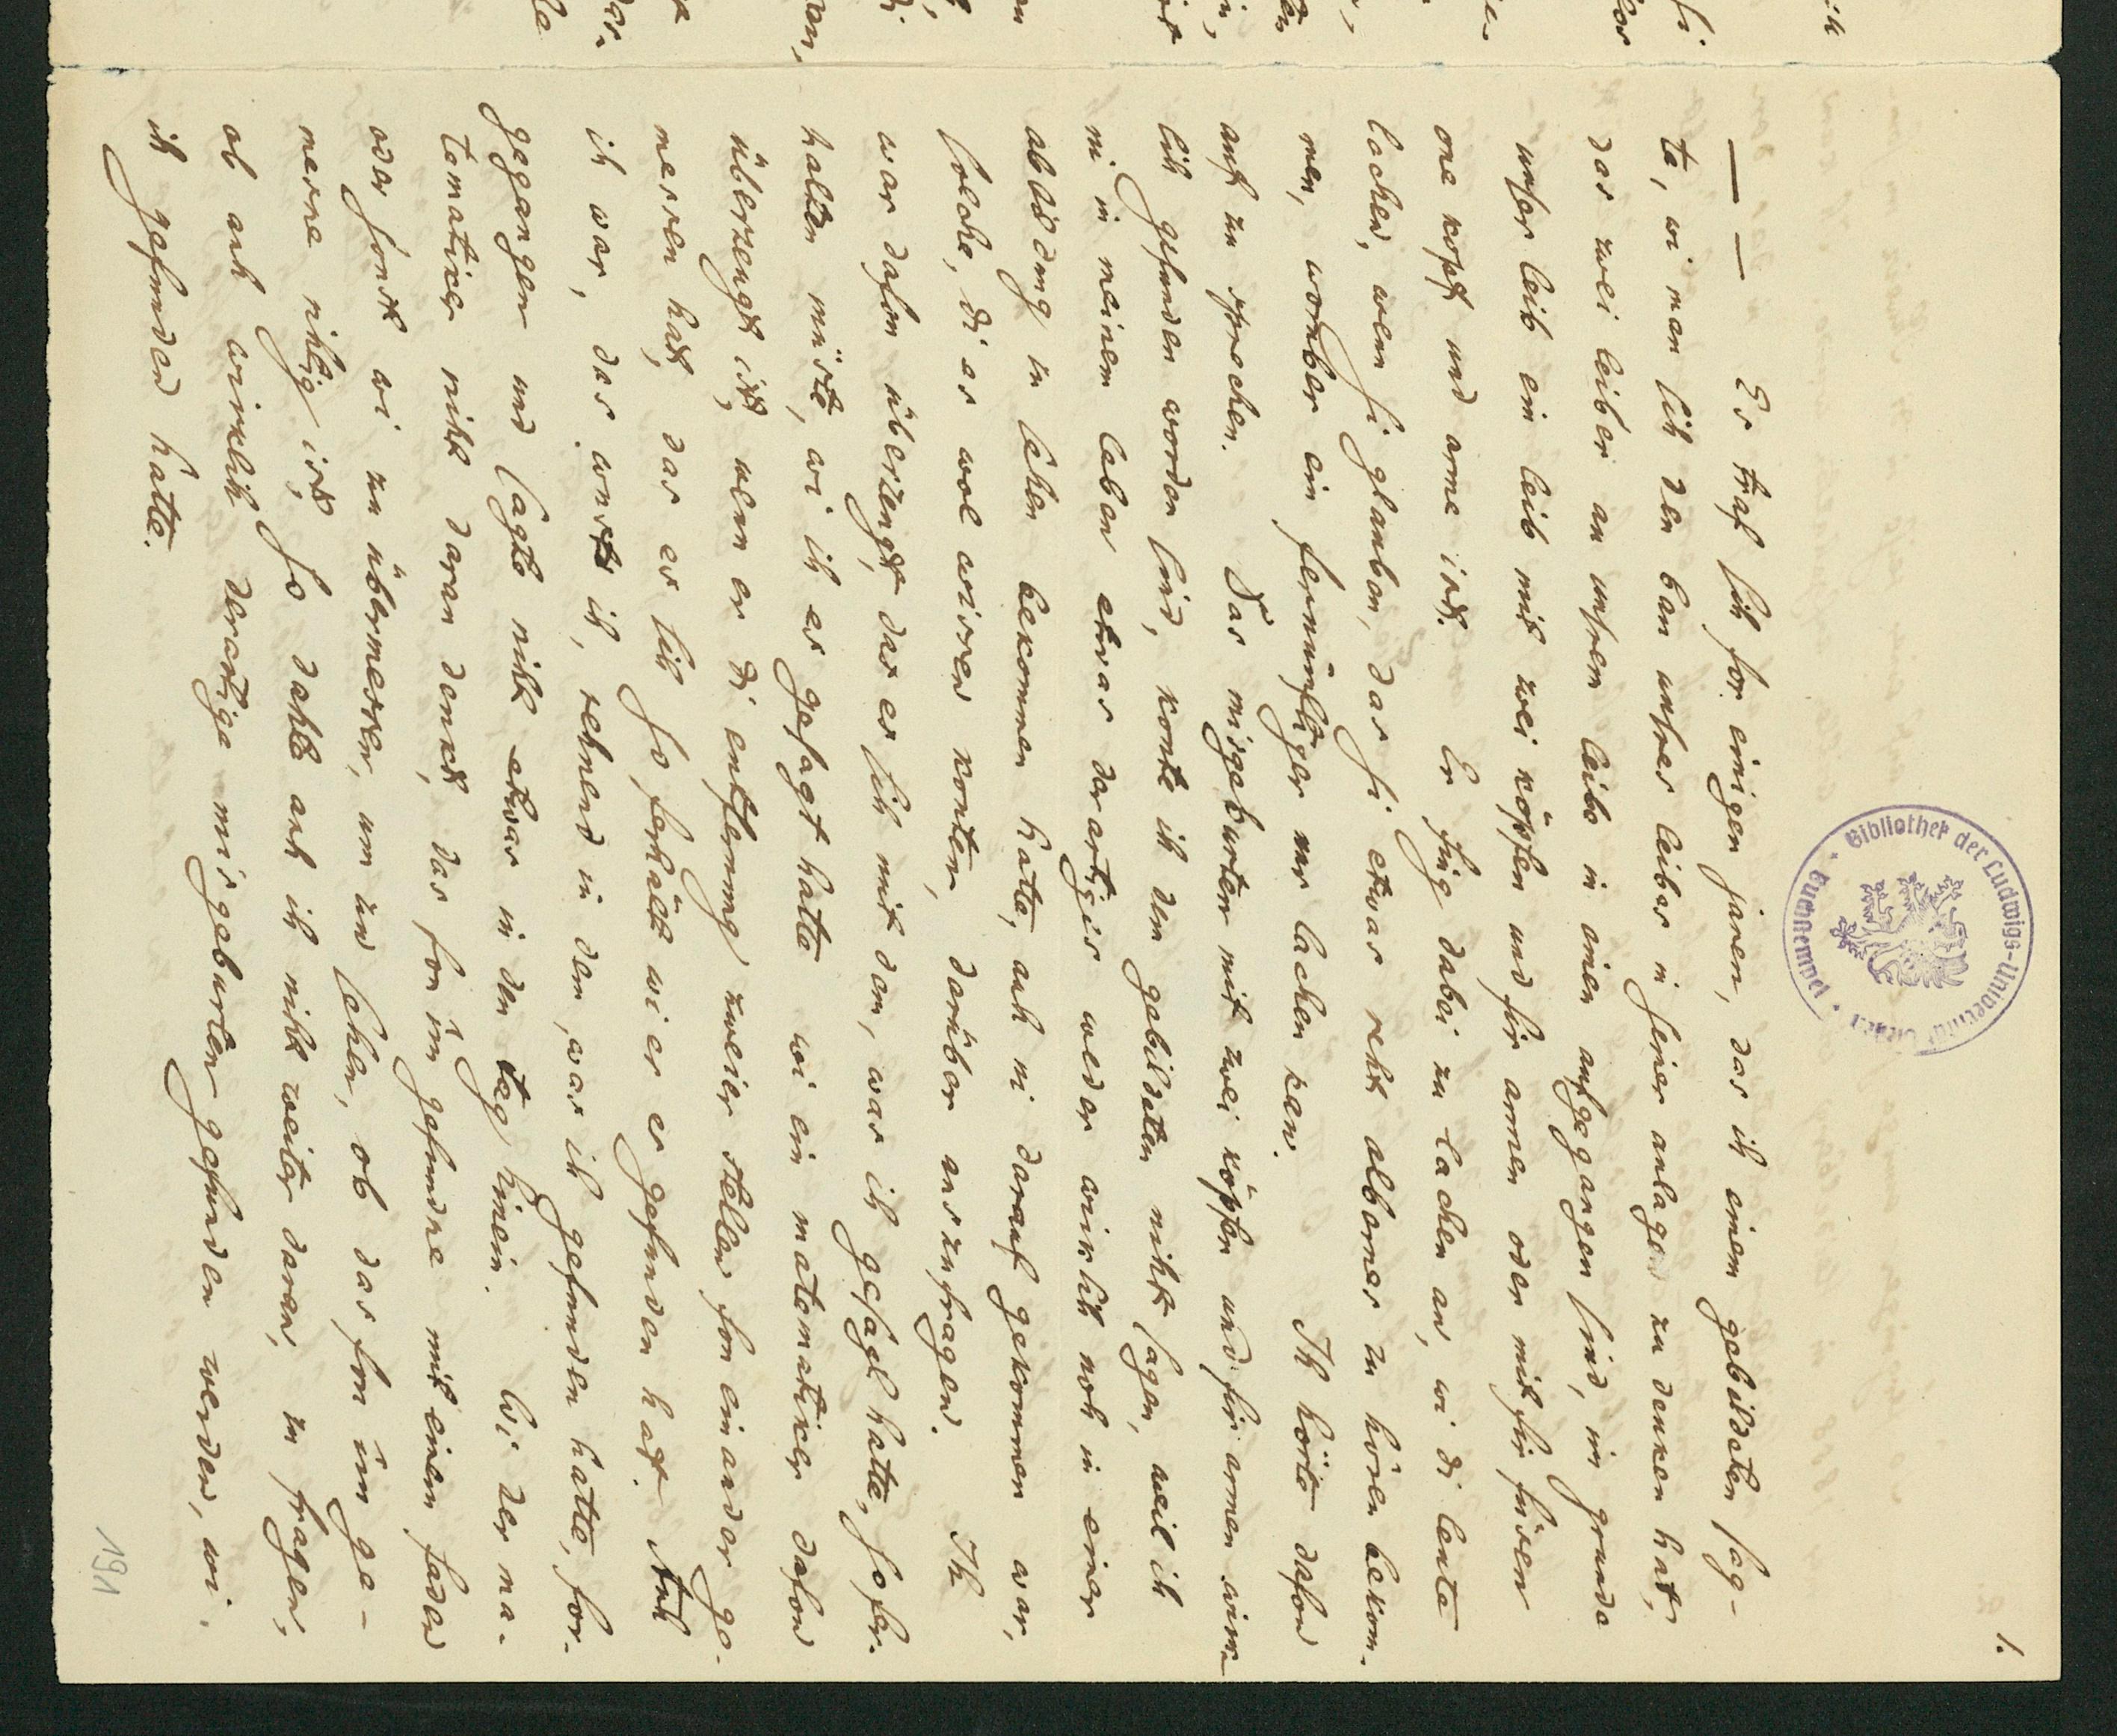 1.
Bibliothek der Ludwigs-Universität Giessen · Buchstempel ·
— — Es traf sih for einigen jaren, das ih einem gebildeten sag-
te, wi man sih den bau unsres leibes in seiner anlage zu denken hat,
das zwei leiber an unsrem leibe in einen aufgegangen sind, im grunde
unser leib ein leib mit zwei köpfen und fir armen oder mit fir füsen
one kopf und arme ist. Er fing dabei zu lachen an, wi di leute
lachen, wenn si glauben, das si etwas reht albernes zu hören bekom-
men, worüber ein fernünftiger nur lachen kan. Ih hörte dafon
auf zu sprechen. Das misgeburten mit zwei köpfen und fir armen wirk-
lih gefunden worden sind, konte ih dem gebildeten niht sagen, weil ih
ni in meinem leben etwas derartigis weder wirklih noh in einer
abbildung zu sehen bekommen hatte, auh ni darauf gekommen war,
solche, di es wol wissen konten, darüber auszufragen. Ih
war dafon überzeugt, das es sih mit dem, was ih gesagt hatte, so fer-
halten müste, wi ih es gesagt hatte wi ein matematiker dafon
überzeugt ist, wenn er di entfernung zweier stellen fon einander ge-
messen hat, das es sih so ferhält wi er es gefunden hat. Auh
ih war, das wuste ih, rehnend zu dem, was ih gefunden hatte, for-
gegangen und sagte niht etwas in den tag hinein. Wi der ma-
tematiker niht daran denkt, das fon im gefundne mit einem faden
oder sonst wi zu übermessen, um zu sehen, ob das fon im ge-
messne rihtig ist, so dahte auh ih niht weiter daran, zu fragen,
ob auh wirklih derartige misgeburten gefunden werden, wi
ih gefunden hatte.
191